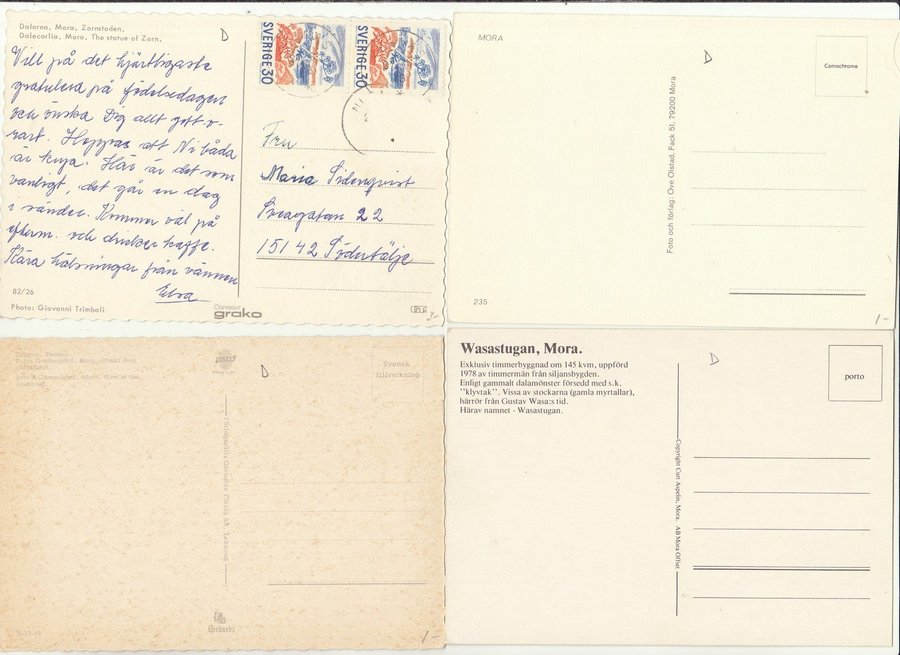 Dalarna, Mora, Zornstoden.
Dalecarlia, Mora. The statue of Zorn.
D
SVERIGE 30
SVERIGE 30
Vill på det hjärtligaste
gratulera på födelsedagen
och önska Dig allt gott o-
vart. Hoppas att Ni båda
är krya. Här är det som
vanligt, det går en dag
i sänder. Kommer väl på
efterm. och dricker kaffe.
Kära hälsningar från vännen
Elsa
Fru
Maria Sidenqvist
Sveagatan 22
151 42 Södertälje
82/26
Photo: Giovanni Trimboli
grako
3-
MORA
D
Comochrome
Foto och förlag: Ove Olstad, Fack 51, 79200 Mora
235
1-
Dalarna, Sweden.
D
Svensk
tillverkning
Gerhards
1-
Wasastugan, Mora.
Exklusiv timmerbyggnad om 145 kvm, uppförd
1978 av timmermän från siljansbygden.
Enligt gammalt dalamönster försedd med s.k.
"klyvtak". Vissa av stockarna (gamla myrtallar),
härrör från Gustav Wasa:s tid.
Härav namnet - Wasastugan.
D
porto
Copyright Curt Aspelin, Mora. AB Mora Offset